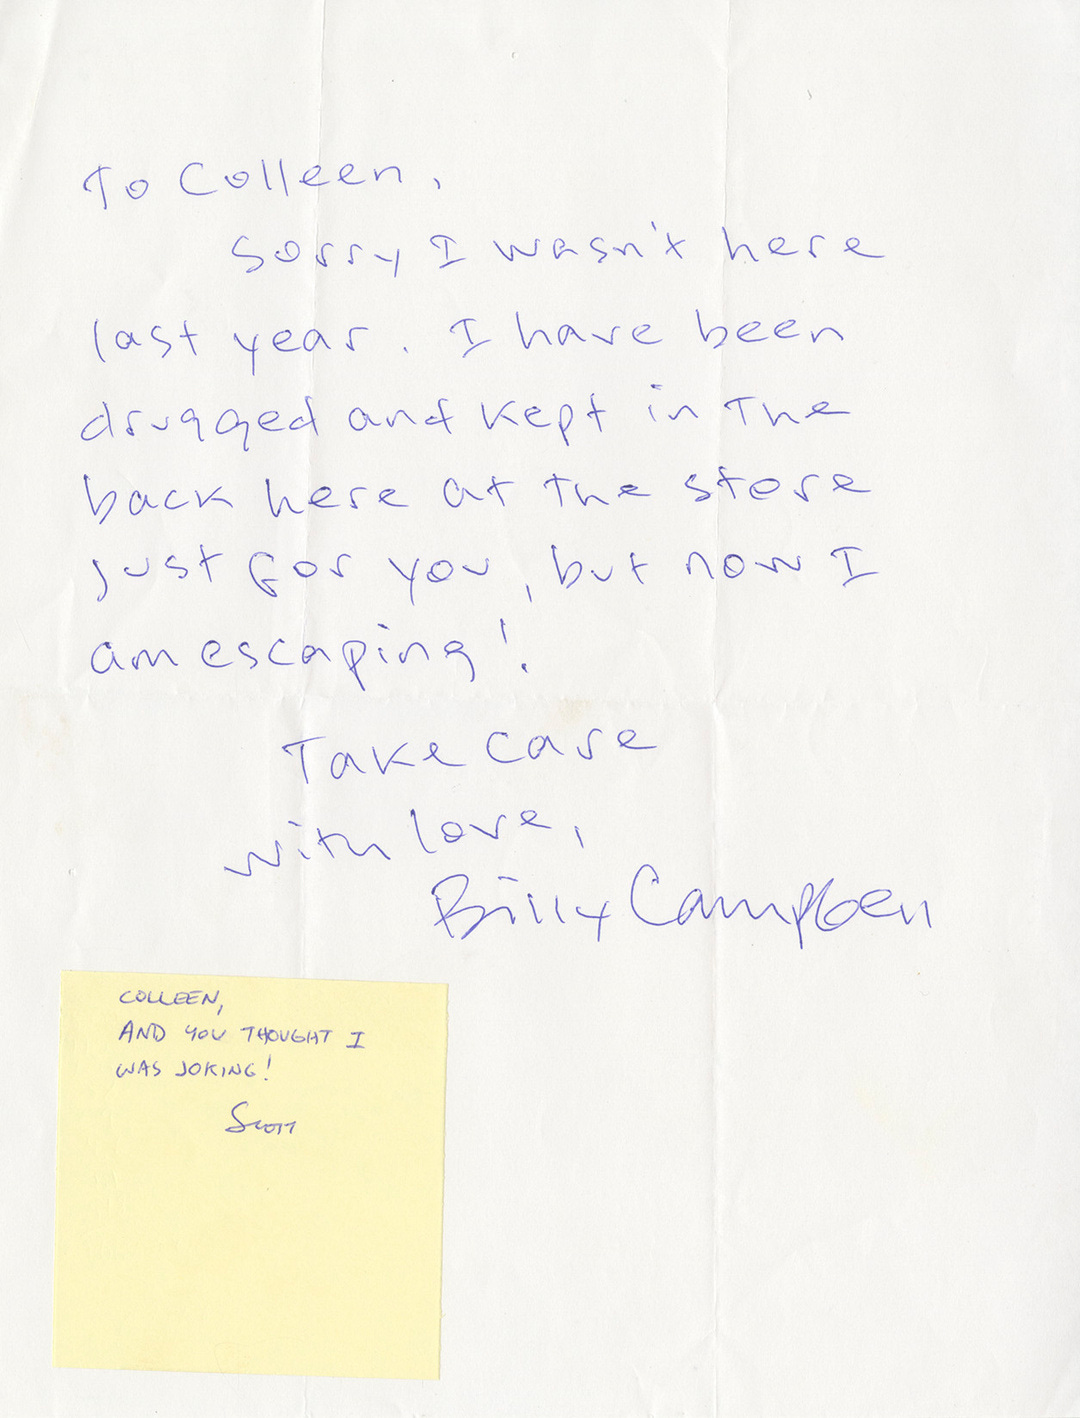 To Colleen,
Sorry I wasn't here
last year. I have been
drugged and kept in the
back here at the store
just for you, but now I
am escaping!
Take care
with love,
Billy Campbell
COLLEEN,
AND YOU THOUGHT I
WAS JOKING!
Scott